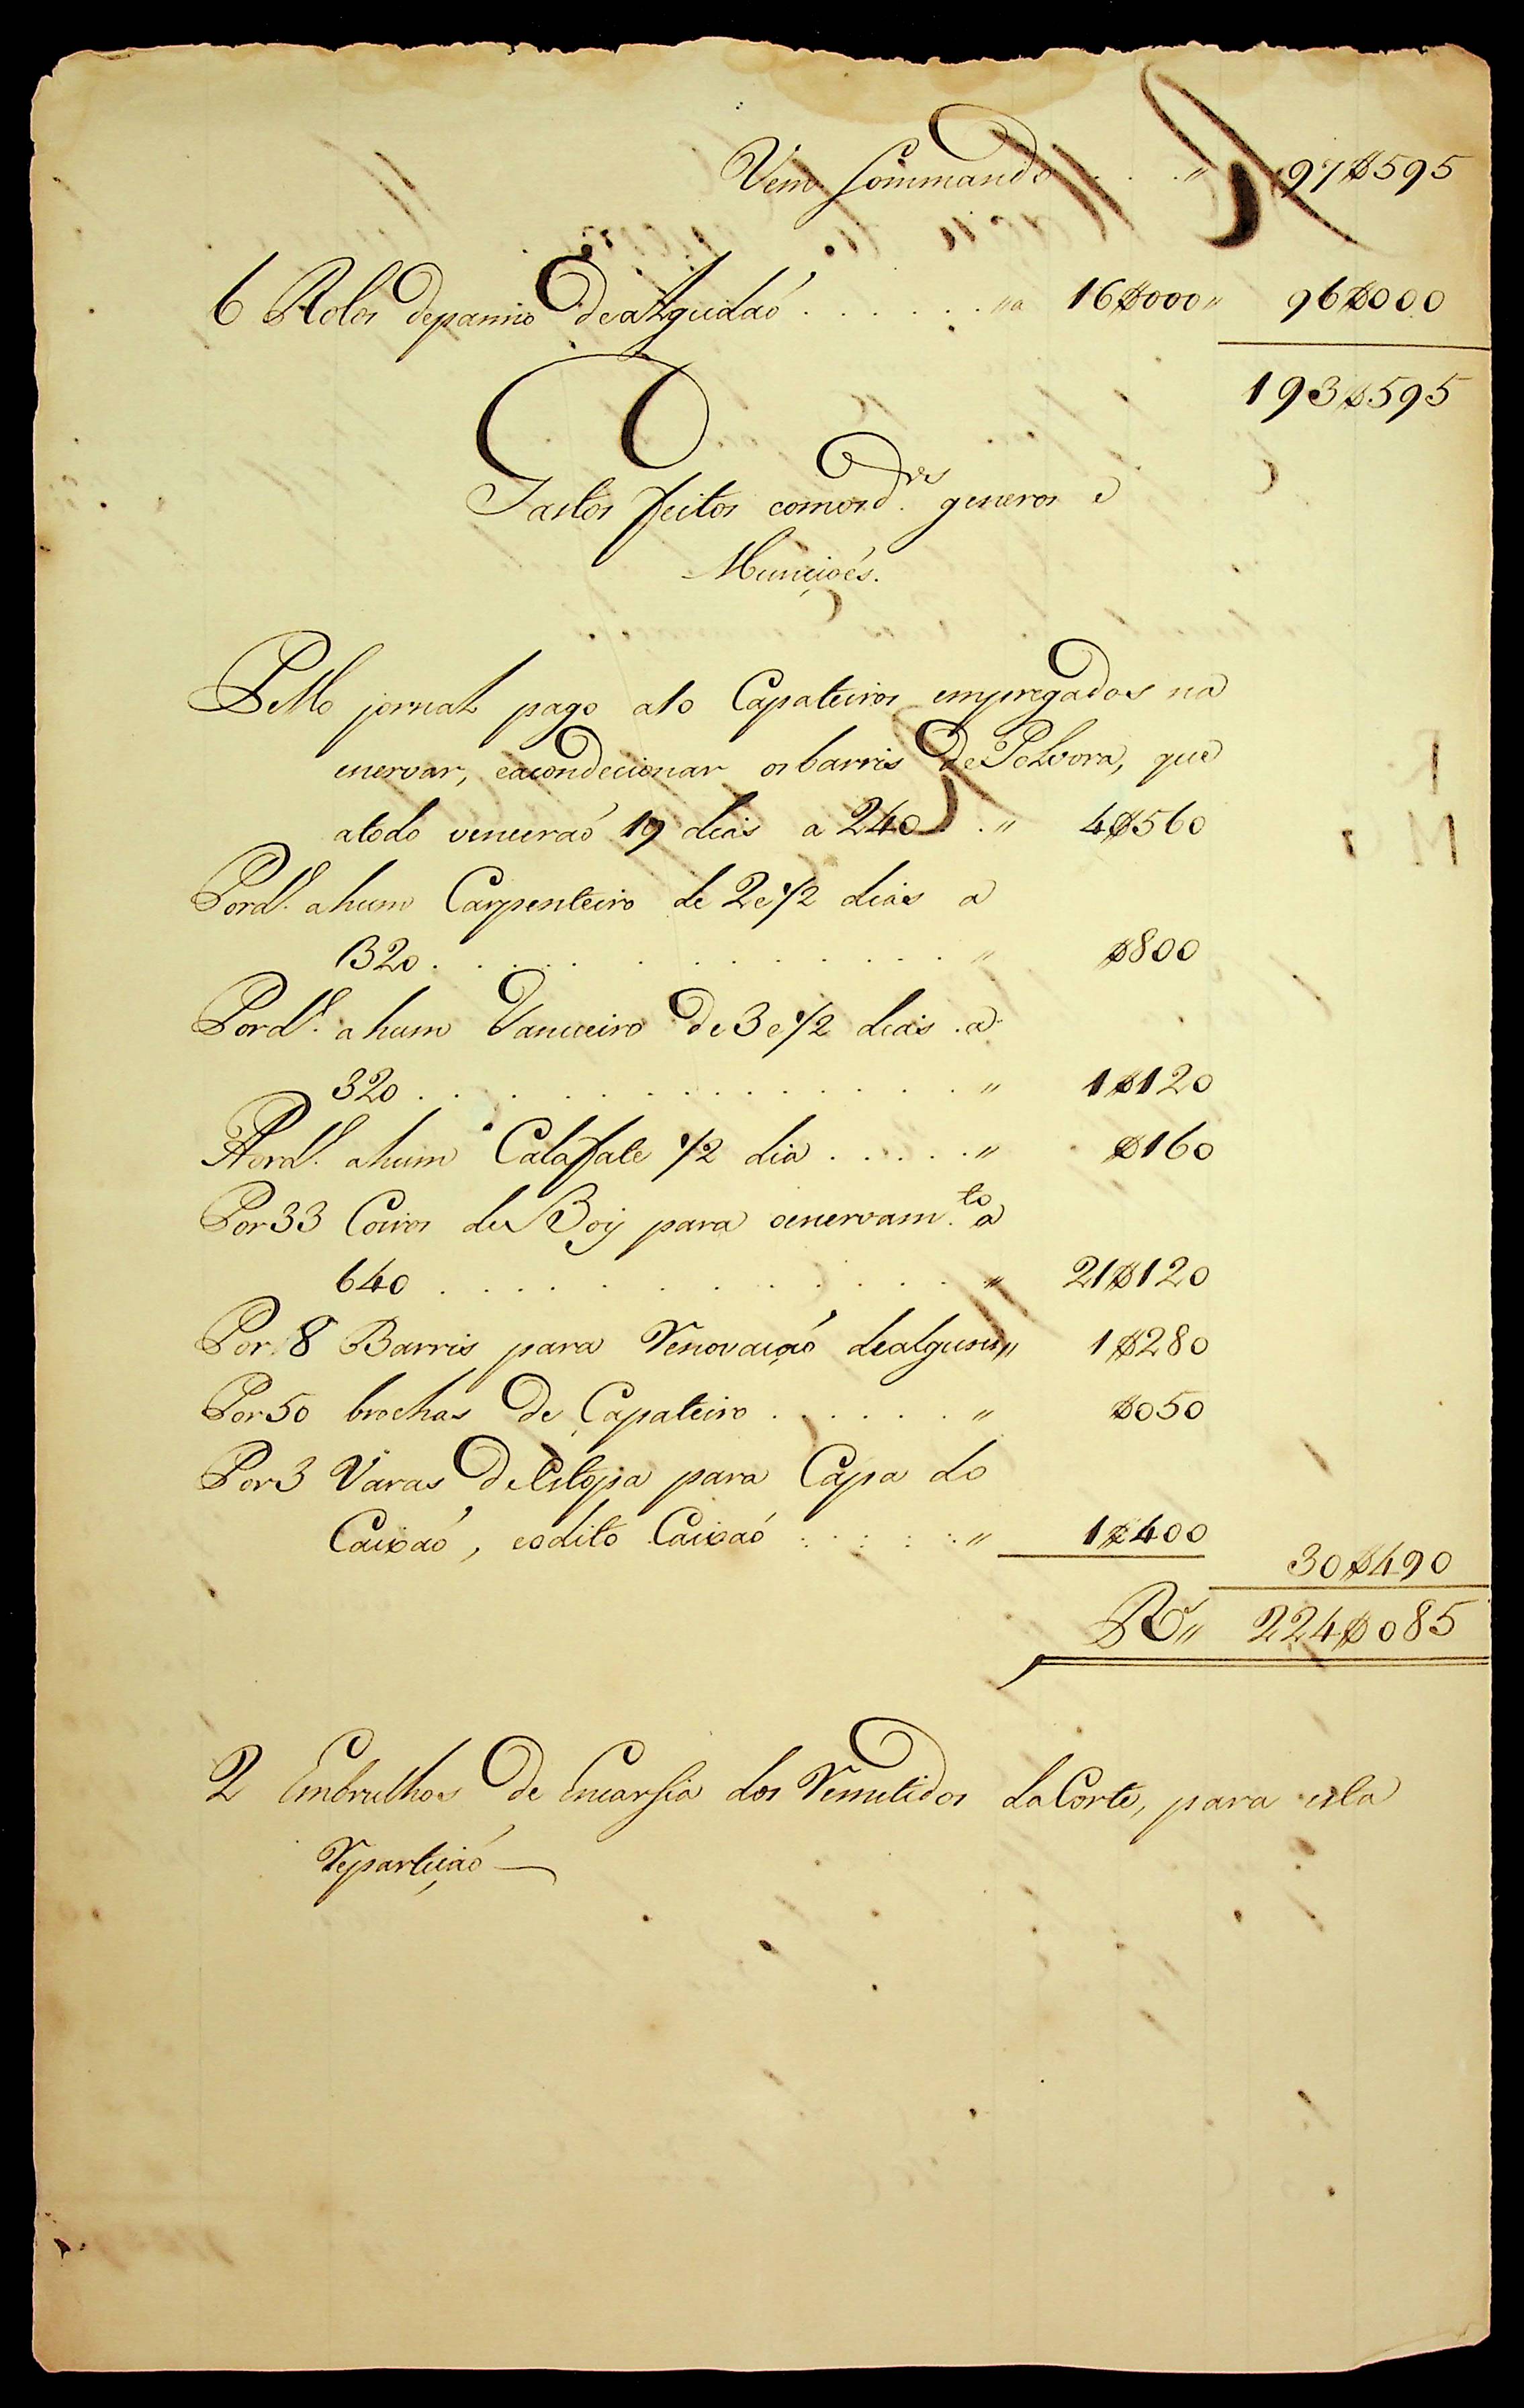 Vem Sommando . . . " 97$595
6 Rolos depanno de algudaó . . . . . . "a 16$000" 96$000
193$595
Gastos feitos comosd.os generos e
Muniçoés.
Pello jornal pago a10 Çapateiros empregados na
enervar, eacondecionar osbarris de Polvora, que
atodo venceraó 19 dias a 240 . . " 4$560
Pord.º ahum Carpenteiro de 2e1/2 dias a
320 . . . . . . . . . . . . " $800
Pord.º ahum Tanoeiro de 3e1/2 dias a
320 . . . . . . . . . . . . . " 1$120
Pord.º ahum Calafate 1/2 dia . . . . . " $160
Por 33 Coiros de Boy para oenervam.to a
640 . . . . . . . . . . . . " 21$120
Por 8 Barris para Renovaçaó dealguns" 1$280
Por 50 brochas de Çapateiro . . . . . . " $050
Por 3 Varas de Estopa para Capa do
Caixaó, eodito Caixaó . . . . . " 1$400
30$490
R.s" 224$085
2 Embrulhos de Encarsia dos Remetidos da Corte, para esta
Repartiçaó —